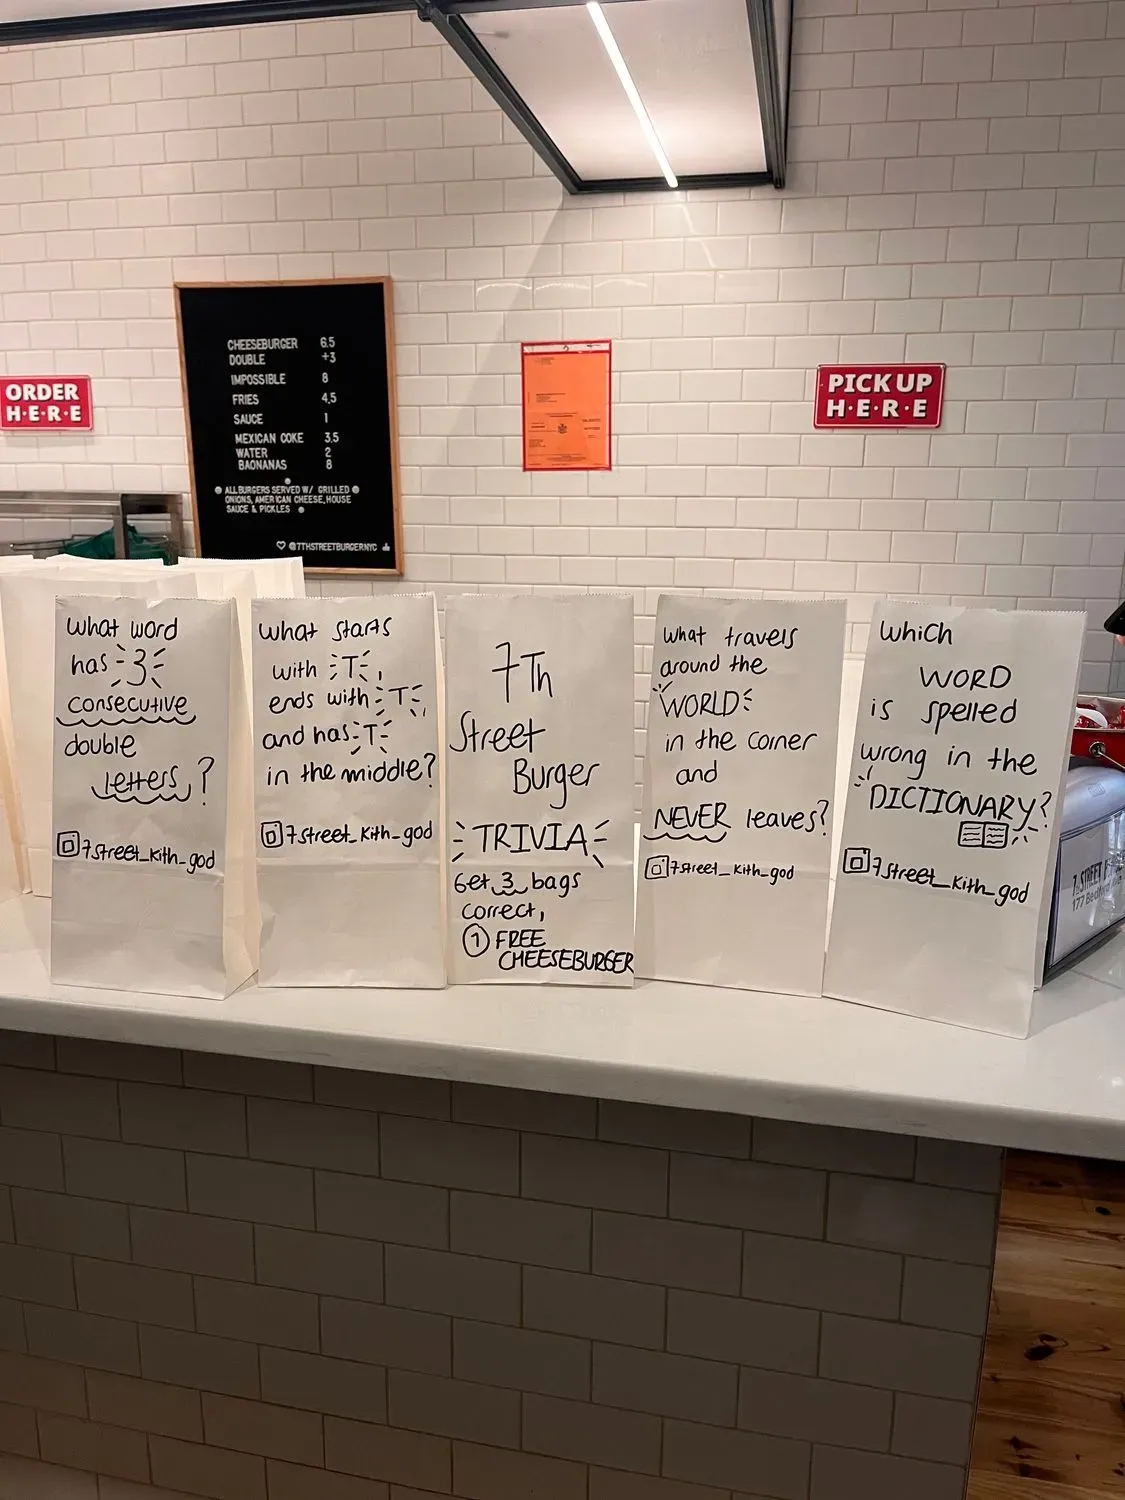 ORDER
H·E·R·E
CHEESEBURGER 6.5
DOUBLE +3
IMPOSSIBLE 8
FRIES 4.5
SAUCE 1
MEXICAN COKE 3.5
WATER 2
BAONANAS 8
ALL BURGERS SERVED W/ GRILLED
ONIONS, AMERICAN CHEESE, HOUSE
SAUCE & PICKLES
@7THSTREETBURGERNYC
PICK UP
H·E·R·E
What word
has 3
consecutive
double
letters?
7street_kith_god
What starts
with T,
ends with T,
and has T
in the middle?
7street_kith_god
7Th
Street
Burger
TRIVIA
Get 3 bags
correct,
1 FREE
CHEESEBURGER
what travels
around the
WORLD
in the corner
and
NEVER leaves?
7street_kith_god
which
WORD
is spelled
wrong in the
DICTIONARY?
7street_kith_god
7 STREET
177